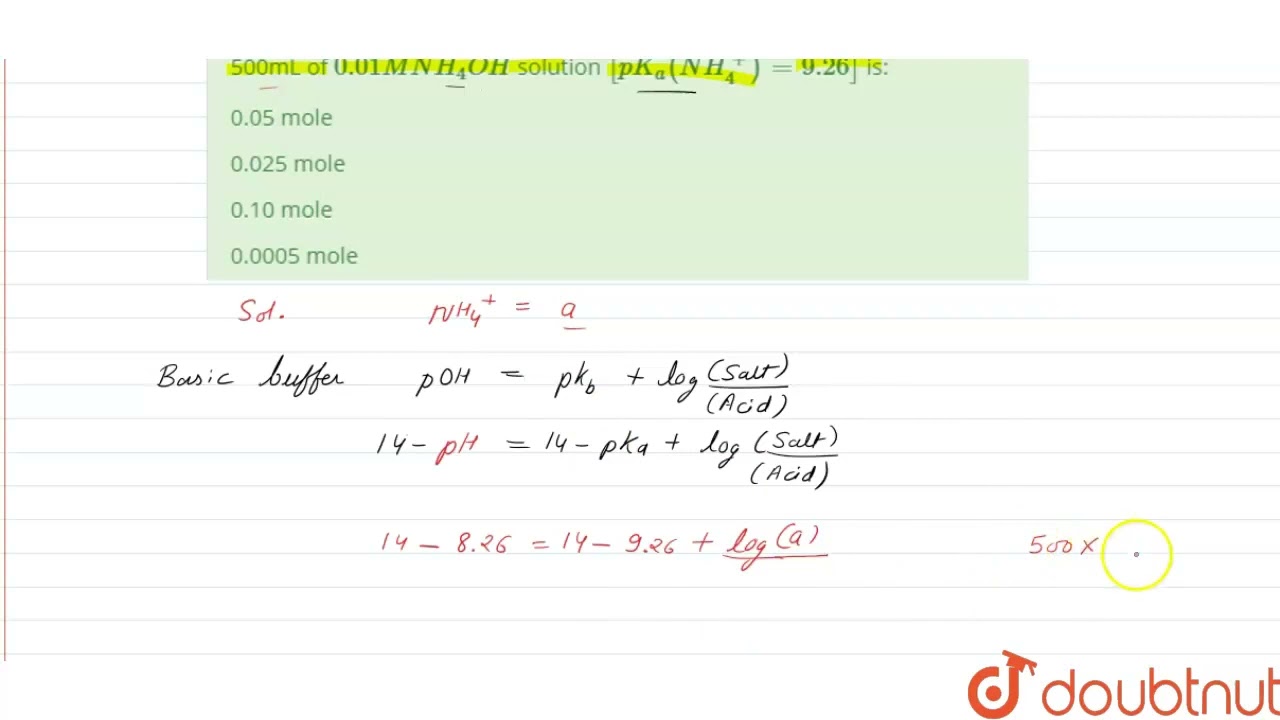 500mL of 0.01MNH₄OH solution [pKₐ(NH₄⁺) = 9.26] is:
0.05 mole
0.025 mole
0.10 mole
0.0005 mole
Sol. NH₄⁺ = a
Basic buffer pOH = pk_b + log (Salt)/(Acid)
14 - pH = 14 - pKₐ + log (Salt)/(Acid)
14 - 8.26 = 14 - 9.26 + log (a) 500 ×
doubtnut